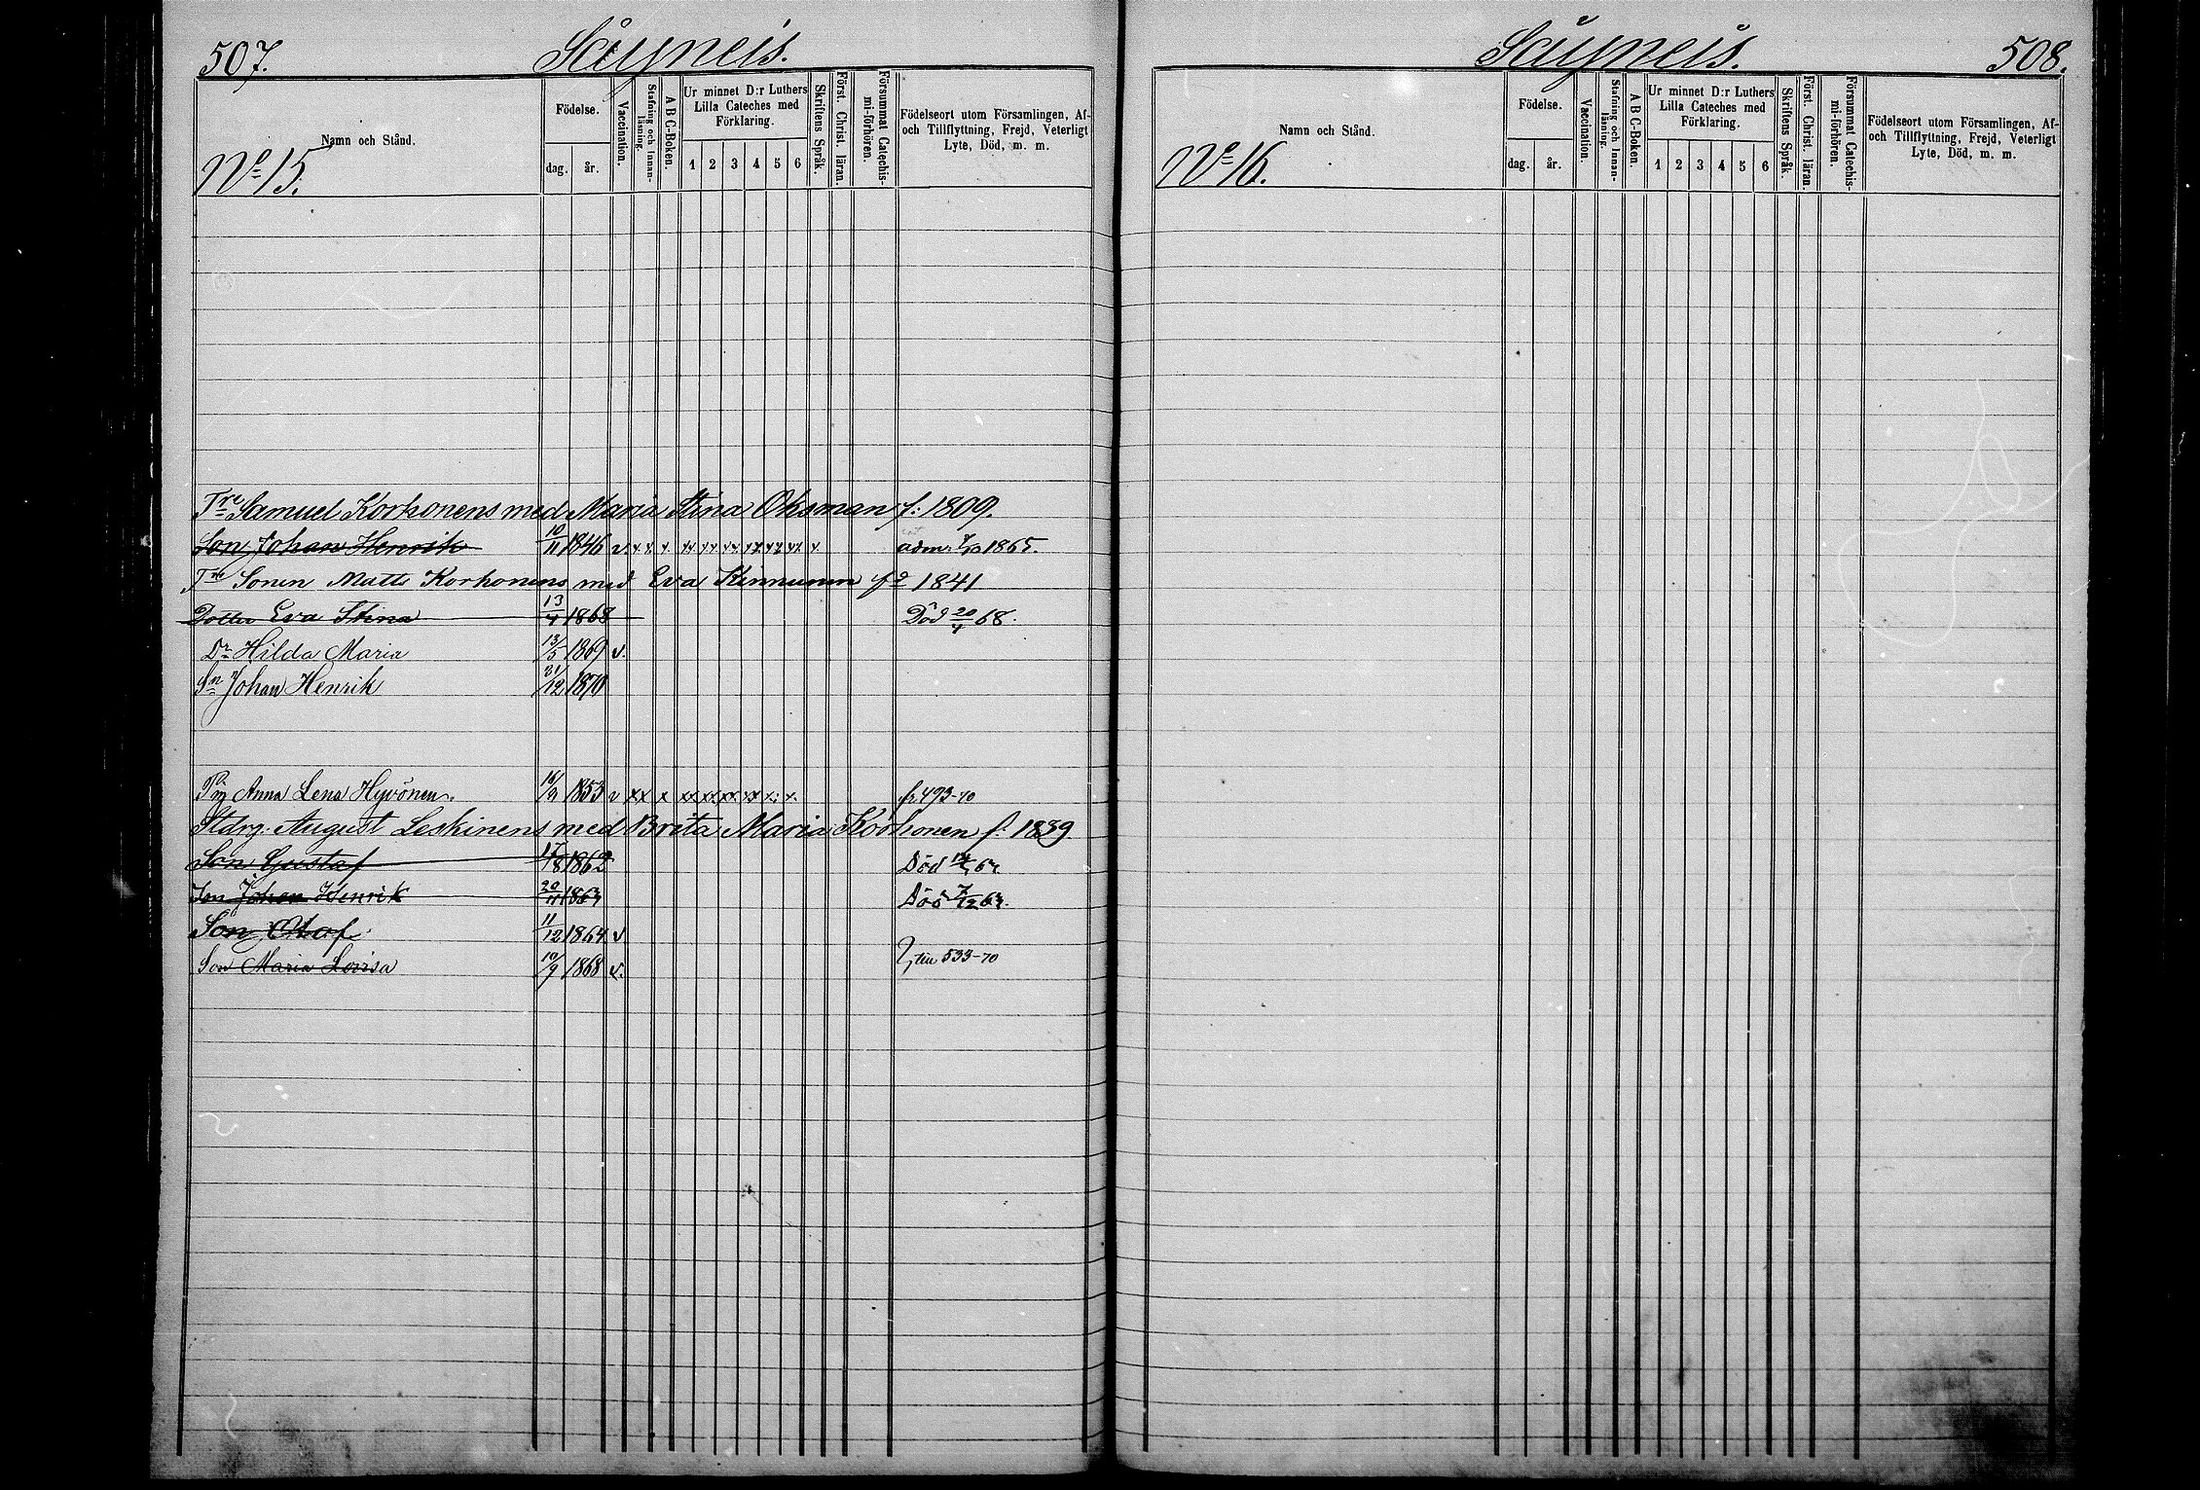 507. Säyneis.
Namn och Stånd.
Födelse.
dag. år.
Vaccination.
Stafning och Innan-läsning.
A B C-Boken.
Ur minnet D:r Luthers
Lilla Cateches med
Förklaring.
1 2 3 4 5 6
Skriftens Språk.
Först. Christ. läran.
Försummat Catechis-mi-förhören.
Födelseort utom Församlingen, Af-
och Tillflyttning, Frejd, Veterligt
Lyte, Död, m. m.
No 15.
Tre Samuel Korhonens med Maria Stina Oksman f: 1809.
Son Johan Henrik 10/11 1846 v adm. 1865.
Tre Sonen Matts Korhonens med Eva Kinnunen fd 1841
Dotter Eva Stina 13/4 1868 Död 20/4 68.
Dr Hilda Maria 13/5 1869 v.
Sn Johan Henrik 31/12 1870
Pig Anna Lena Hyvönen. 16/9 1853 v x x x xx xx xx xx x. x. fr 493-70
Stdrg. August Leskinens med Brita Maria Korhonen f: 1839.
Son Gustaf 17/8 1862 Död
Son Johan Henrik 20/11 1863 Död 7/12 63.
Son Olof 11/12 1864 v
Son Maria Lovisa 10/9 1868 v. till 533-70
Säyneis. 508.
Namn och Stånd.
Födelse.
dag. år.
Vaccination.
Stafning och Innan-läsning.
A B C-Boken.
Ur minnet D:r Luthers
Lilla Cateches med
Förklaring.
1 2 3 4 5 6
Skriftens Språk.
Först. Christ. läran.
Försummat Catechis-mi-förhören.
Födelseort utom Församlingen, Af-
och Tillflyttning, Frejd, Veterligt
Lyte, Död, m. m.
No 16.